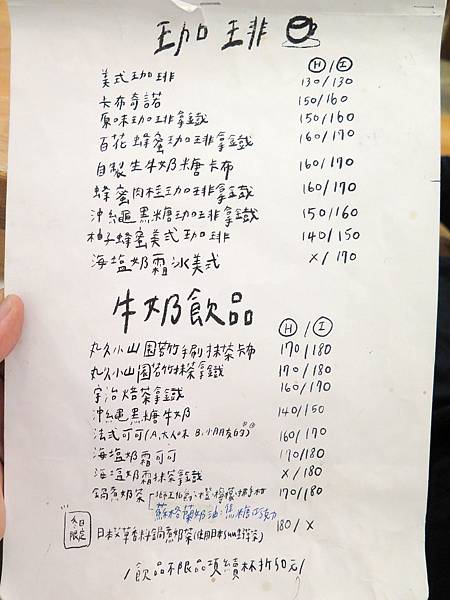 咖啡
Ⓗ/Ⓘ
美式咖啡 130/130
卡布奇諾 150/160
原味咖啡拿鐵 150/160
百花蜂蜜咖啡拿鐵 160/170
自製生牛奶糖卡布 160/170
蜂蜜肉桂咖啡拿鐵 160/170
沖繩黑糖咖啡拿鐵 150/160
柚子蜂蜜美式咖啡 140/150
海塩奶霜冰美式 x/170
牛奶飲品
Ⓗ/Ⓘ
丸久小山園若竹手刷抹茶卡布 170/180
丸久小山園若竹抹茶拿鐵 170/180
宇治焙茶拿鐵 160/170
沖繩黑糖牛奶 140/150
法式可可(A.大人味 B.小朋友的) 160/170
海塩奶霜可可 170/180
海塩奶霜抹茶拿鐵 x/180
鍋煮奶茶 170/180
蘇格蘭奶油焦糖
本日限定
日本 香料鍋煮奶茶(使用日本 ) 180/x
/飲品不限品項續杯折50元/